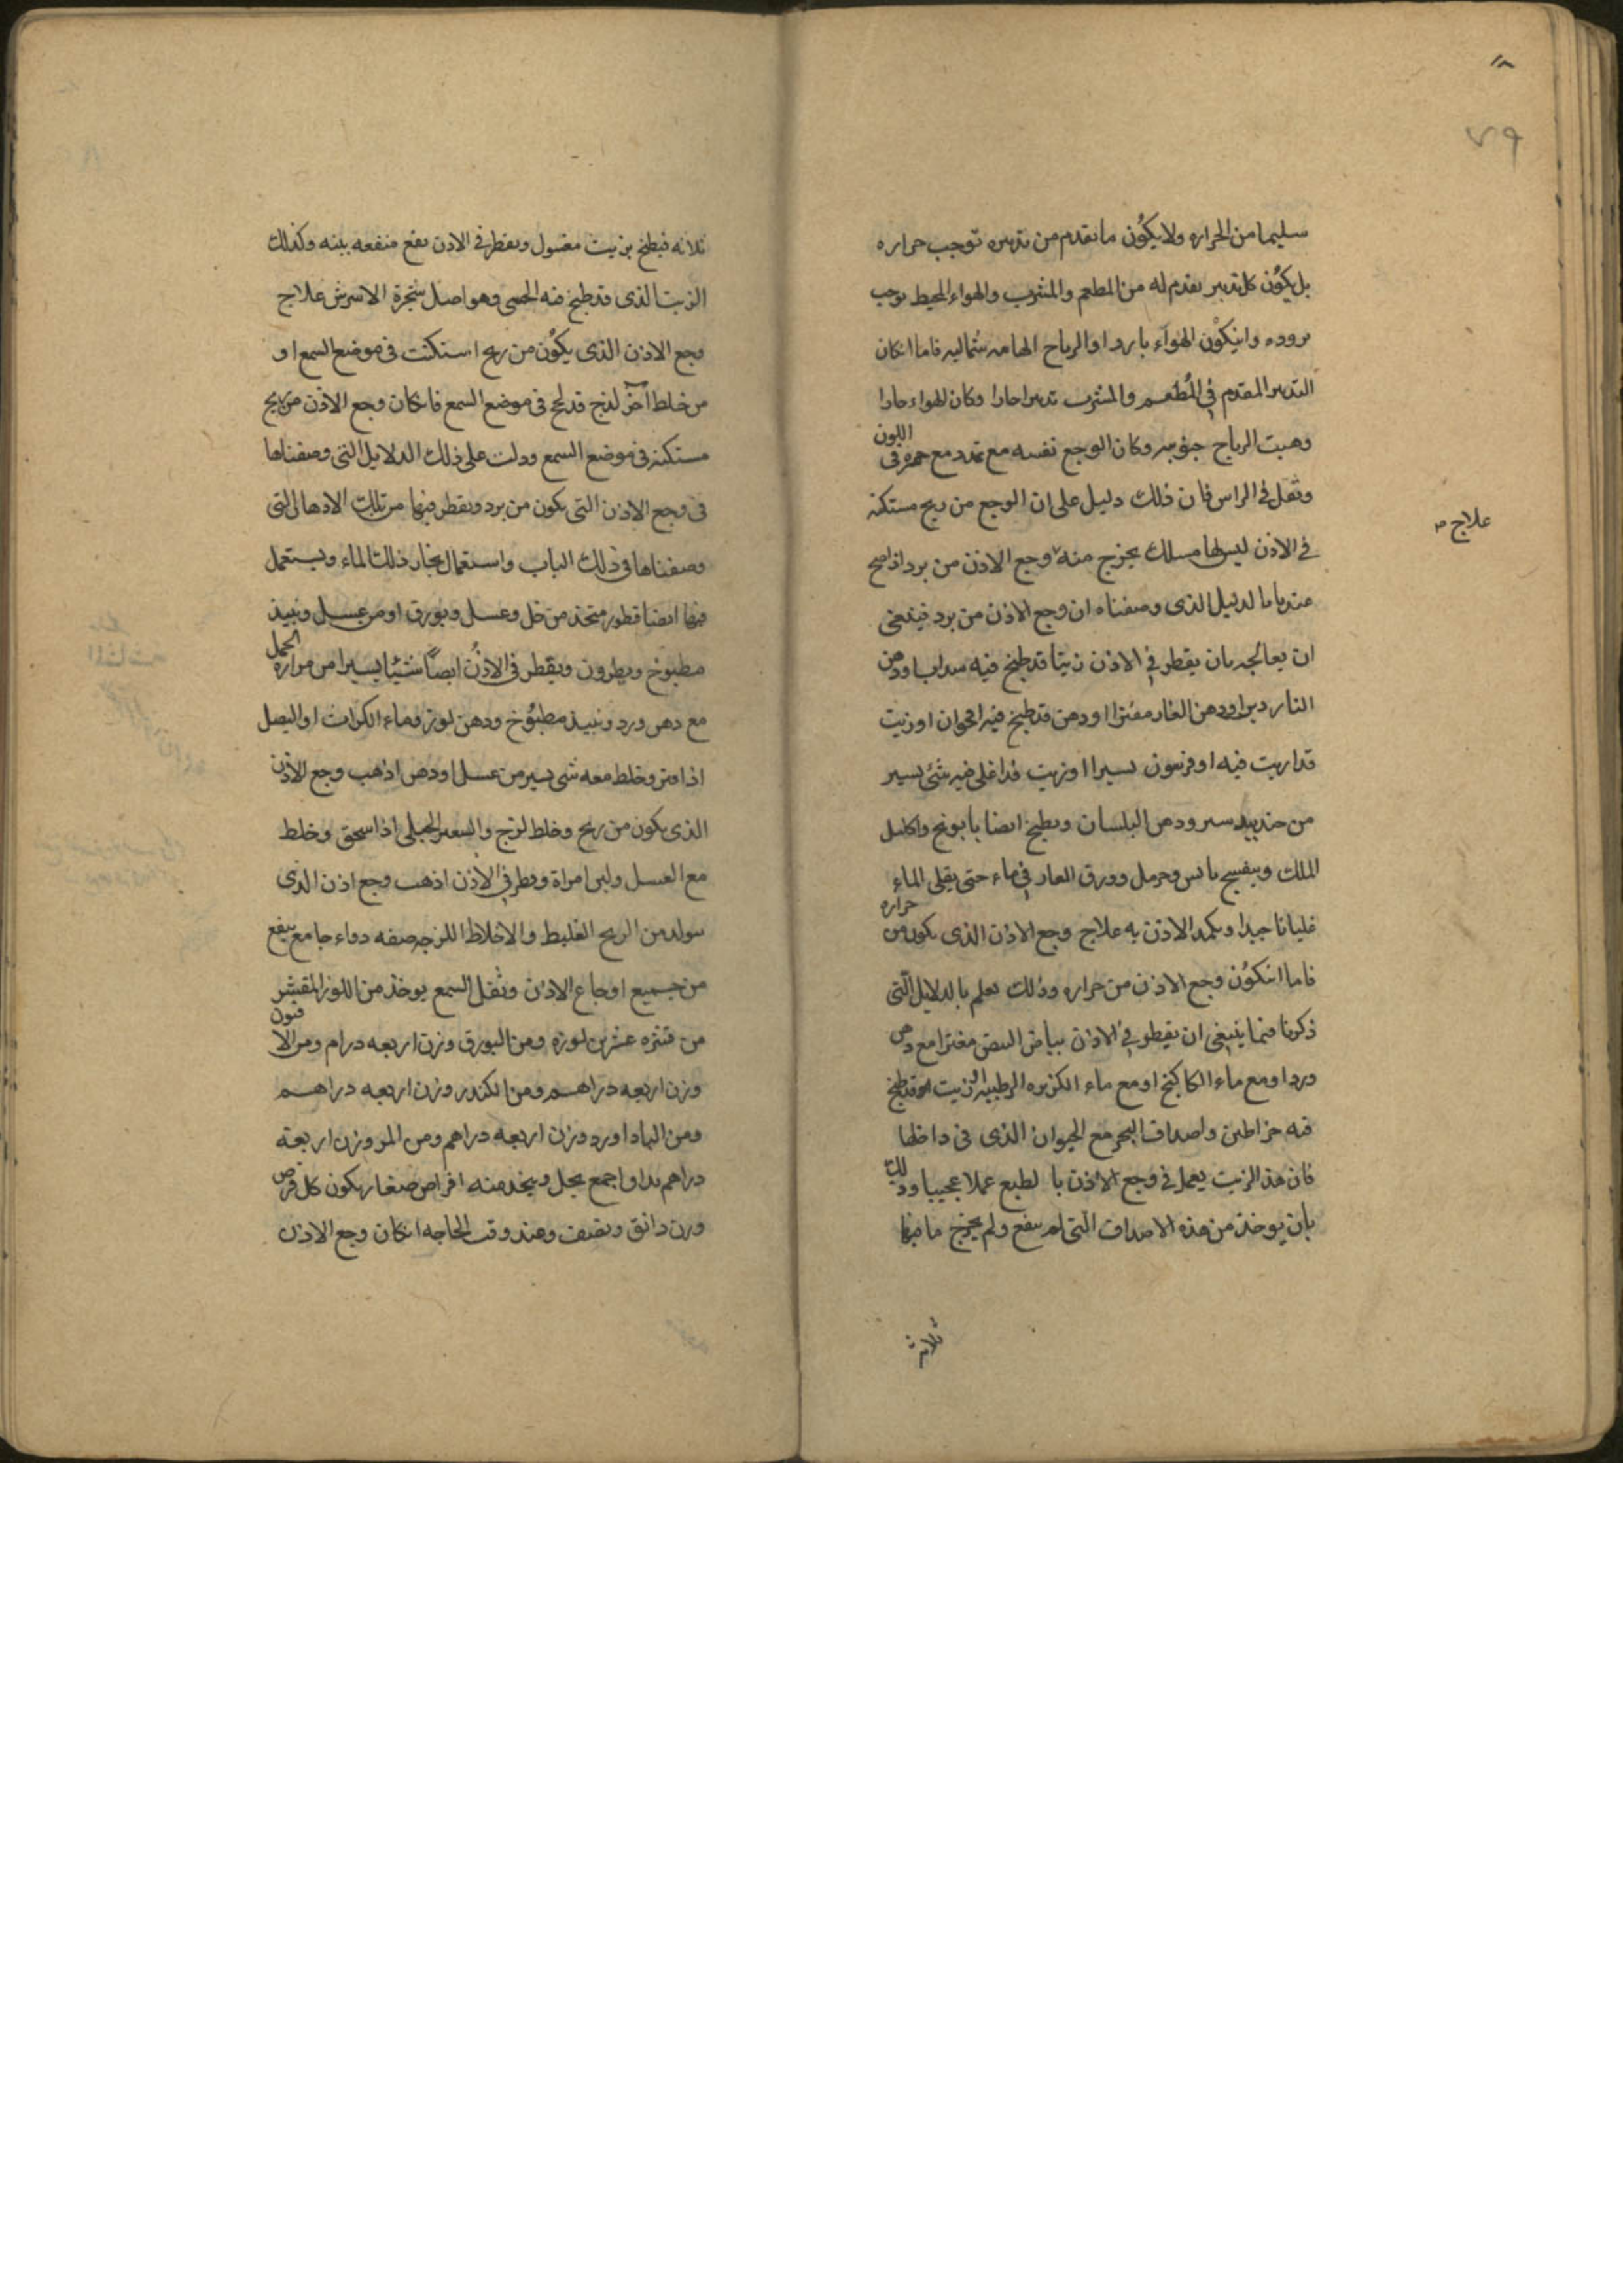 ٧٩
سليما من الحراره ولا يكون ما تقدم من تدبيره توجب حراره
بل يكون كل تدبير تقدم له من المطعم والمشرب والهواء المحيط توجب
بروده وان يكون الهواء باردا والرياح الهابه شماليه فاما انكان
التدبير المقدم في المطعم والمشرب تدبيرا حارا وكان الهواء حارا
وهبت الرياح جنوبيه وكان الوجع نفسه مع تمدد مع حمره في اللون
وثقل في الراس فان ذلك دليل على ان الوجع من ريح مستكنه
علاج
في الاذن ليس لها مسلك يخرج منه وجع الاذن من برد اذا صح
عندنا بالدليل الذي وصفناه ان وجع الاذن من برد فينبغي
ان يعالجه بان يقطر في الاذن زيتا قد طبخ فيه سداب او دهن
الناردين او دهن الغار مفترا او دهن قد طبخ فيه اقحوان او زيت
قد اريت فيه اوفربيون يسيرا او زيت قد اغلي فيه شئ يسير
من جندبيدستر ودهن البلسان ويطبخ ايضا بابونج واكليل
الملك وبنفسج يابس وحرمل وورق الغار في ماء حتى يغلي الماء
غليانا جيدا ويكمد الاذن به علاج وجع الاذن الذي يكون من حراره
فاما ان يكون وجع الاذن من حراره وذلك يعلم بالدلايل التي
ذكرنا فيما ينبغي ان يقطر في الاذن بياض البيض مفترا مع دهن
ورد او مع ماء الكاكنج او مع ماء الكزبره الرطبه الزيت قد طبخ
فيه خراطين واصداف البحر مع الحيوان الذي في داخلها
فان هذا الزيت يعمل في وجع الاذن بالطبع عملا عجيبا وذلك
بان يوخذ من هذه الاصداف التي لم ينقع ولم يخرج ما فيها
ثلاثه
ثلاثه فيطبخ بزيت مغسول ويقطر في الاذن نفع منفعه بينه وكذلك
الزيت الذي قد طبخ فيه الخصى وهو اصل شجرة الاشرش علاج
وجع الاذن الذي يكون من ريح استكنت في موضع السمع او
من خلط آخر لذج قد لحج في موضع السمع فانكان وجع الاذن من ريح
مستكنه في موضع السمع ودلت على ذلك الدلايل التي وصفناها
في وجع الاذن التي يكون من برد ويقطر فيها من تلك الادهان التي
وصفناها في ذلك الباب واستعمال بخار ذلك الماء ويستعمل
فيها ايضا قطور متخذ من خل وعسل وبورق او من عسل ونبيذ
مطبوخ ونطرون ويقطر في الاذن ايضاً شيئا يسيرا من مراره الجمل
مع دهن ورد ونبيذ مطبوخ ودهن لوز وماء الكراث او البصل
اذا فتر وخلط معه شي يسير من عسل او دهن اذهب وجع الاذن
الذي يكون من ريح وخلط لزج والسعتر الجبلي اذا سحق وخلط
مع العسل ولبن امراة وقطر في الاذن اذهب وجع اذن الذي
يتولد من الريح الغليظ والاخلاط اللزجه صفه دواء جامع ينفع
من جميع اوجاع الاذن وثقل السمع يوخذ من اللوز المقشر
من قشره عشرين لوزه ومن البورق وزن اربعه درام ومن الافيون
وزن اربعه دراهم ومن الكندر وزن اربعه دراهم
ومن الباداورد وزن اربعه دراهم ومن المر وزن اربعة
دراهم يداوا جمع بخل ويتخذ منه اقراص صغار يكون كل قرص
وزن دانق ويجفف وعند وقت الحاجه انكان وجع الاذن